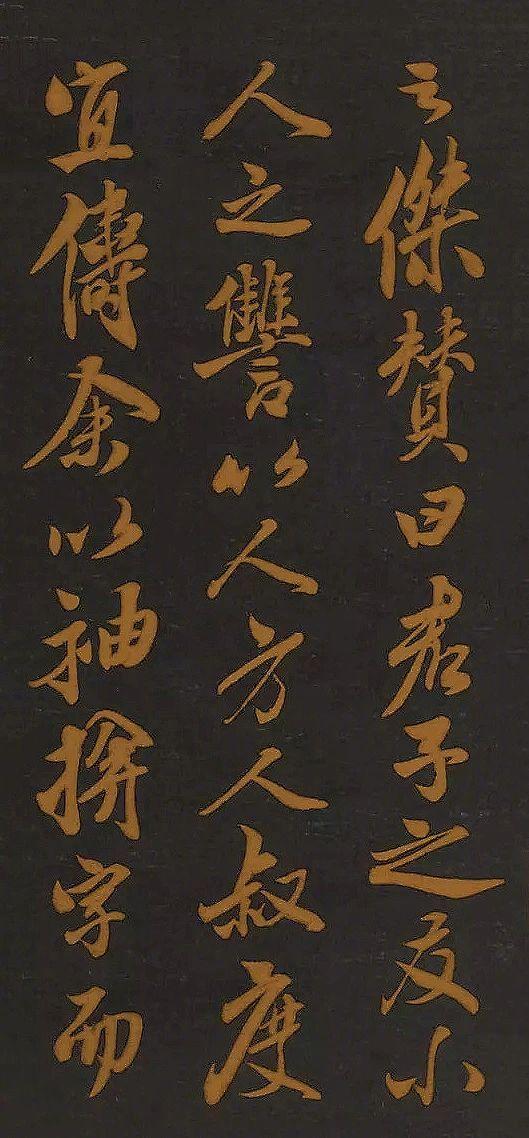 云傑贊曰君子之友小
人之讐以人方人叔度
宜儔余以袖拚字而